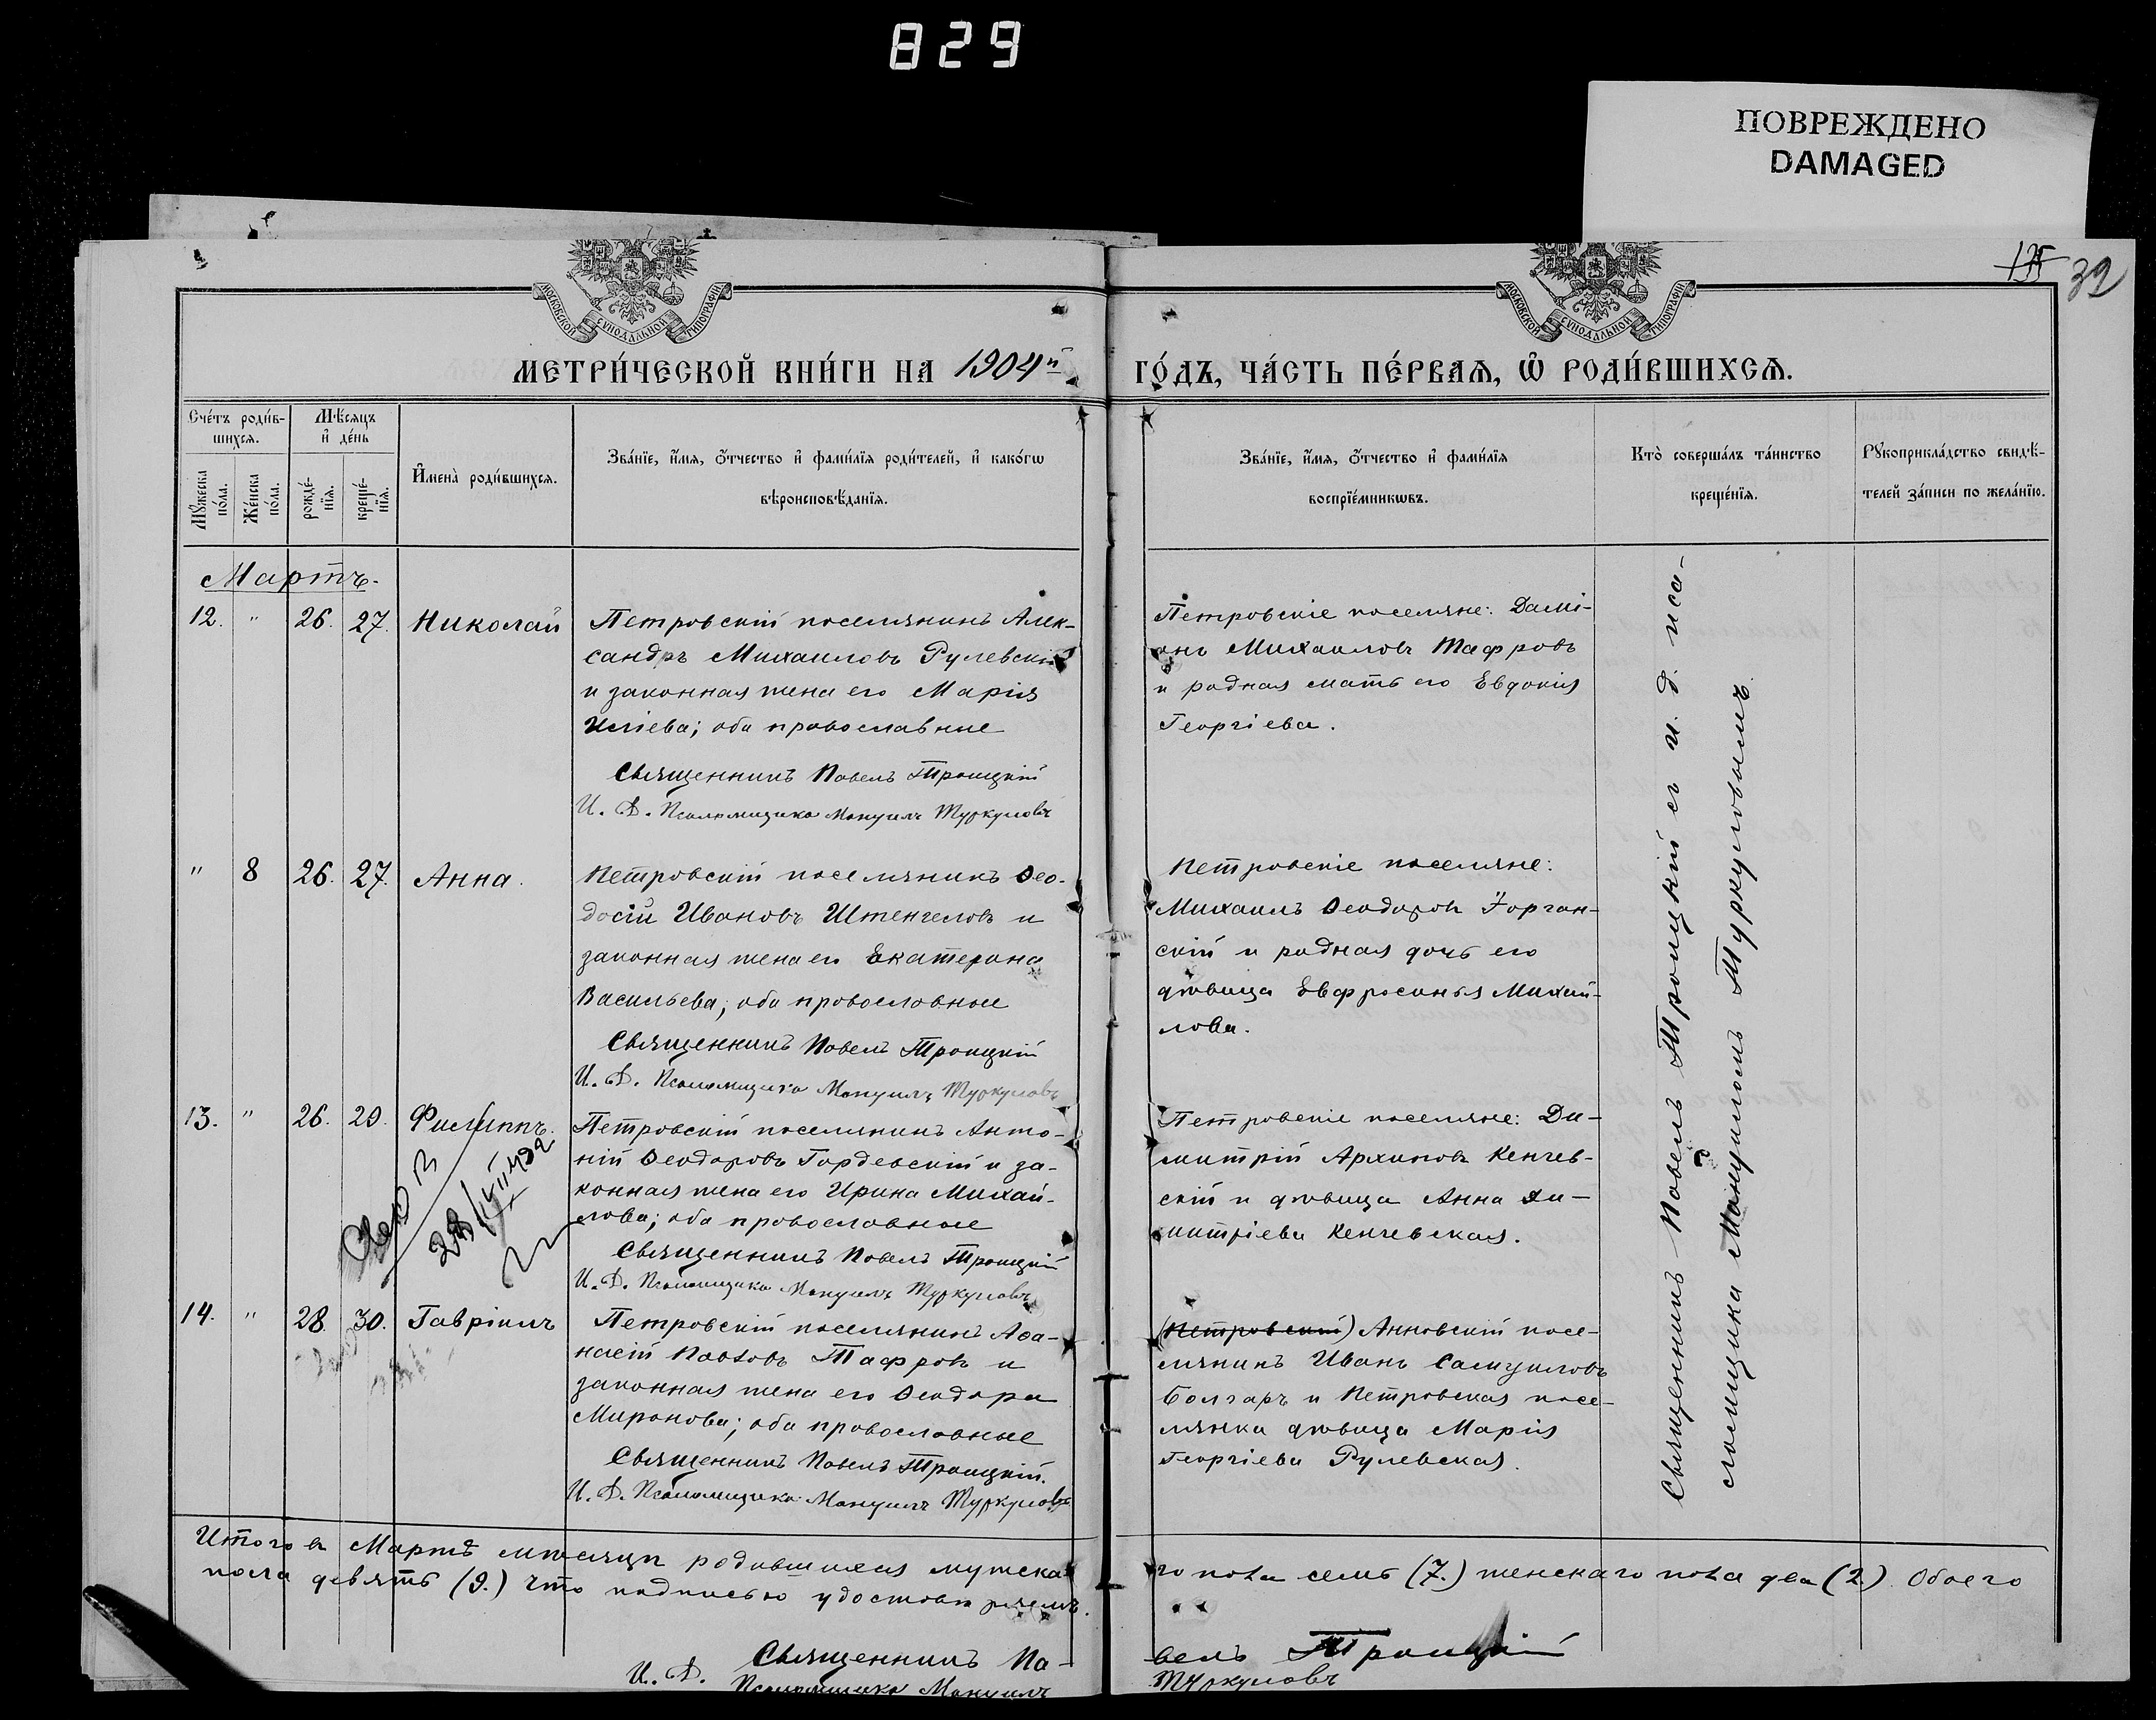 829
ПОВРЕЖДЕНО
DAMAGED
39
МОСКОВСКОЙ СѴНОДАЛЬНОЙ ТИПОГРАФІИ
МОСКОВСКОЙ СѴНОДАЛЬНОЙ ТИПОГРАФІИ
МЕТРИ́ЧЕСКОЙ КНИ́ГИ НА 1904й ГО́ДЪ, ЧА́СТЬ ПЕ́РВАЯ, Ѡ҆ РОДИ́ВШИХСЯ.
Сче́тъ роди́в-
шихся.
Мѣ́сяцъ
и҆ де́нь
Мꙋ́жеска по́ла.
Же́нска по́ла.
рожде́-
нїя.
креще́-
нїя.
И҆мена̀ роди́вшихся.
Зва́нїе, и҆́мя, ѻ҆́тчество и҆ фами́лїя роди́телей, и҆ како́гѡ
вѣроисповѣ́данїя.
Зва́нїе, и҆́мя, ѻ҆́тчество и҆ фами́лїя
воспрїе́мникѡвъ.
Кто̀ соверша́лъ та́инство
креще́нїя.
Рꙋкоприкла́дство свидѣ́-
телей за́писи по жела́нїю.
Мартъ.
12. " 26. 27. Николай
Петровскій поселянинъ Алек-
сандръ Михаиловъ Рулевскій
и законная жена его Марія
Иліева; оба православные
Священникъ Павелъ Троицкій
И. Д. Псаломщика Мануилъ Туркуловъ
Петровскіе поселяне: Дамі-
анъ Михаиловъ Тафровъ
и родная мать его Евдокія
Георгіева.
" 8 26. 27. Анна.
Петровскій поселянинъ Ѳео-
досій Ивановъ Штенгеловъ и
законная жена его Екатерина
Васильева; оба православные
Священникъ Павелъ Троицкій
И. Д. Псаломщика Мануилъ Туркуловъ
Петровскіе поселяне:
Михаилъ Ѳеодоровъ Іорган-
скій и родная дочь его
дѣвица Евфросинья Михай-
лова.
13. " 26. 29. Филиппъ.
Петровскій поселянинъ Анто-
ній Ѳеодоровъ Гордевскій и за-
конная жена его Ирина Михай-
лова; оба православные
Священникъ Павелъ Троицкій
И. Д. Псаломщика Мануилъ Туркуловъ
Петровскіе поселяне: Ди-
митрій Архиповъ Кенчев-
скій и дѣвица Анна Ди-
митріева Кенчевская.
14. " 28. 30. Гавріилъ
Петровскій поселянинъ Аѳа-
насій Павловъ Тафровъ и
законная жена его Ѳеодора
Миронова; оба православные
Священникъ Павелъ Троицкій.
И. Д. Псаломщика Мануилъ Туркуловъ
(Петровскій) Анновскій посе-
лянинъ Иванъ Самуиловъ
Болгаръ и Петровская посе-
лянка дѣвица Марія
Георгіева Рулевская.
Священникъ Павелъ Троицкій съ и. д. пса-
ломщика Мануиломъ Туркуловымъ.
Итого въ Мартѣ мѣсяцѣ родившихся мужска го пола семь (7.) женскаго пола два (2.) Обоего
пола девять (9.) что подписью удостовѣряемъ.
Священникъ Па- велъ Троицкій
И. Д. Псаломщика Мануилъ Туркуловъ